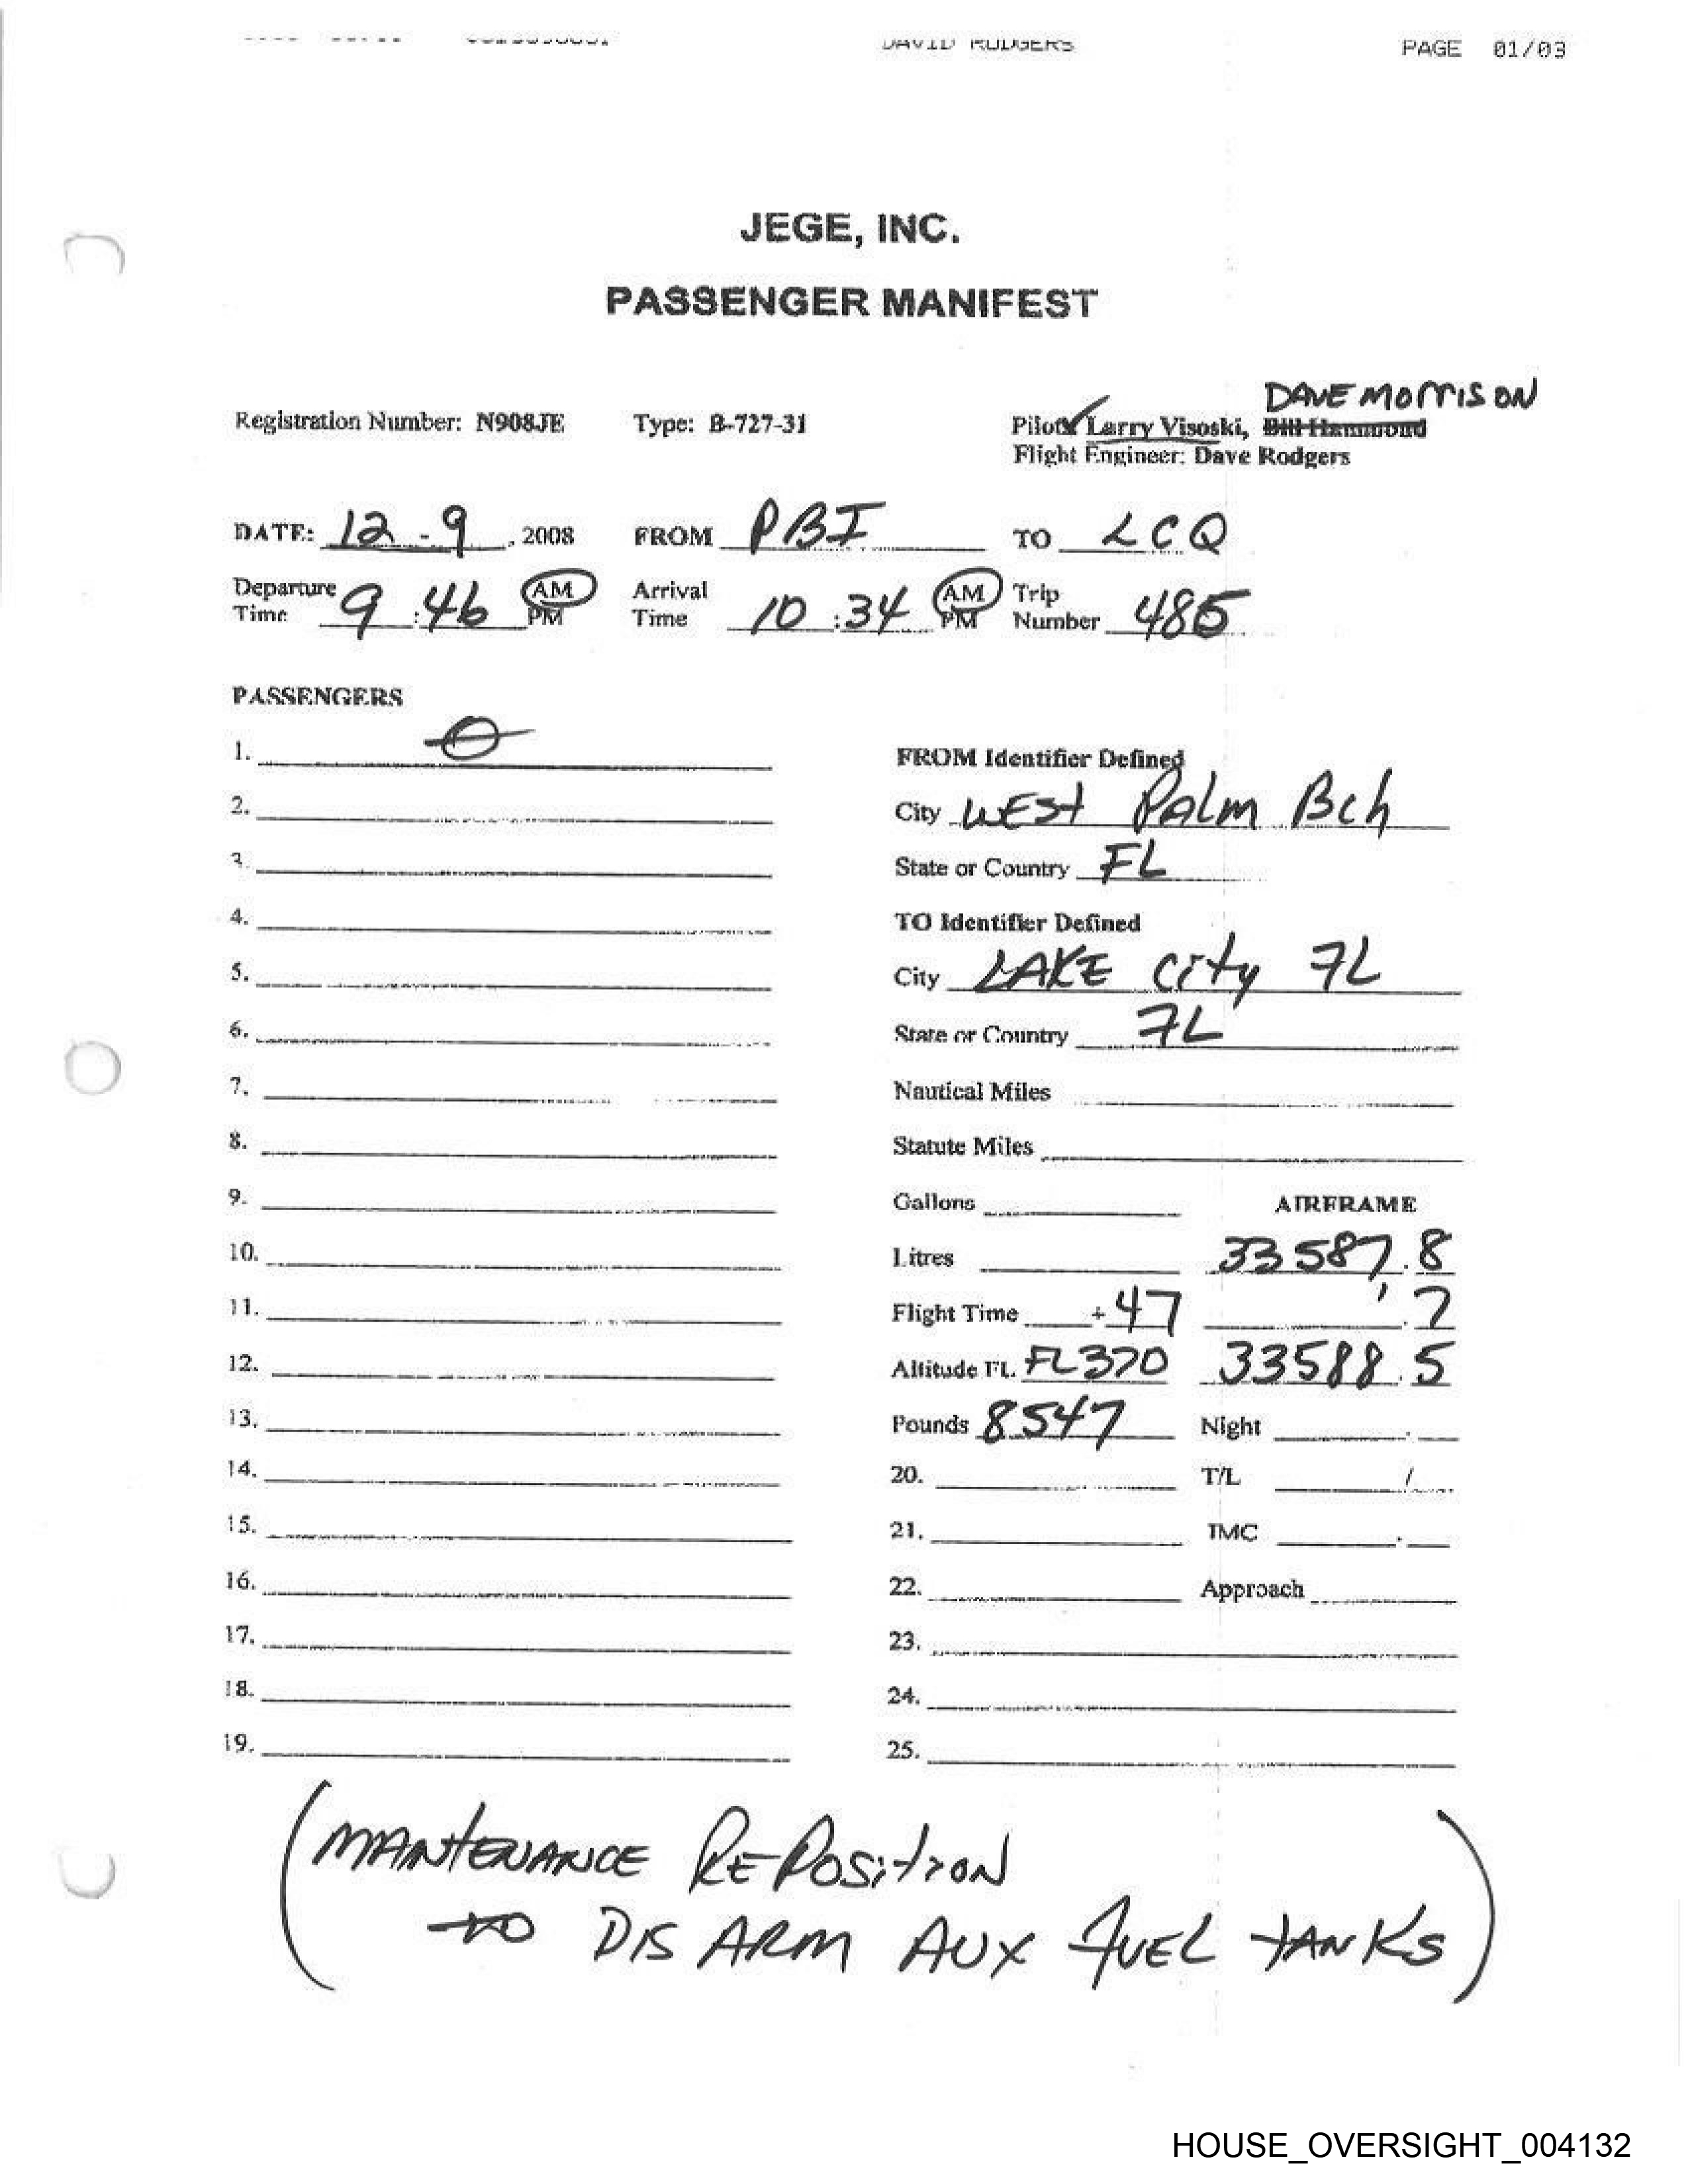 DAVID RODGERS PAGE 01/03
JEGE, INC.
PASSENGER MANIFEST
DAVE MORRISON
Registration Number: N908JE Type: B-727-31 Pilots Larry Visoski, Bill Hammond
Flight Engineer: Dave Rodgers
DATE: 12-9, 2008 FROM PBI TO LCQ
Departure Time 9:46 AM PM Arrival Time 10:34 AM PM Trip Number 485
PASSENGERS
1. 0
FROM Identifier Defined
2.
City WEST PALM Bch
3.
State or Country FL
4.
TO Identifier Defined
5.
City LAKE City FL
6.
State or Country FL
7.
Nautical Miles
8.
Statute Miles
9.
Gallons AIRFRAME
10.
Litres 33587.8
11.
Flight Time +47 .7
12.
Altitude FL. FL370 33588.5
13.
Pounds 8547 Night .
14.
20. T/L /
15.
21. IMC .
16.
22. Approach
17.
23.
18.
24.
19.
25.
(MANTENANCE REPOSITION
TO DISARM AUX FUEL TANKS)
HOUSE_OVERSIGHT_004132